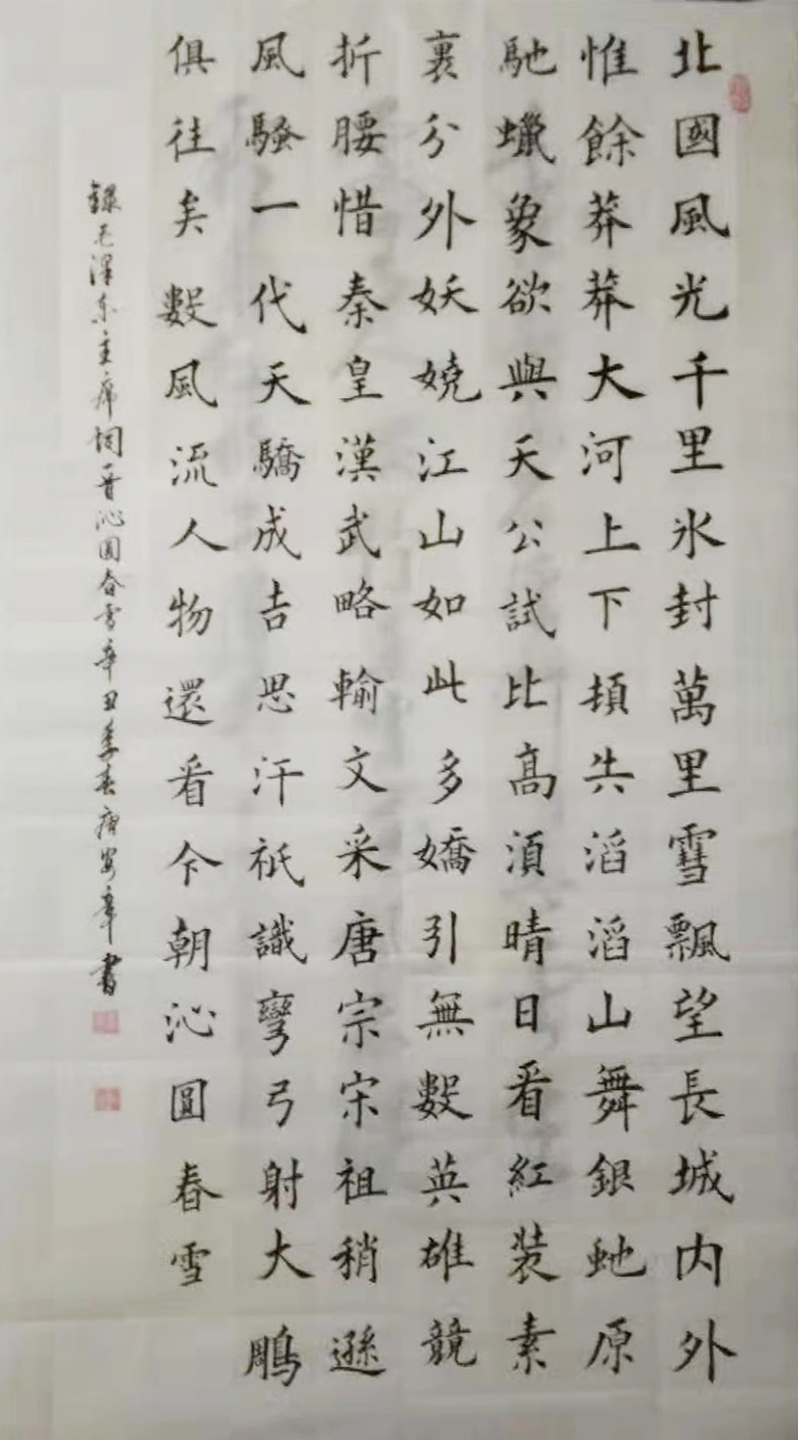 北國風光千里氷封萬里雪飄望長城内外
惟餘莽莽大河上下頓失滔滔山舞銀虵原
馳蠟象欲與天公試比高湏晴日看紅裝素
裹分外妖嬈江山如此多嬌引無數英雄競
折腰惜秦皇漢武略輸文采唐宗宋祖稍遜
風騷一代天驕成吉思汗祇識彎弓射大鵰
俱往矣數風流人物還看今朝沁圓春雪
錄毛澤东主席詞一首沁圓春雪辛丑季春唐安章書